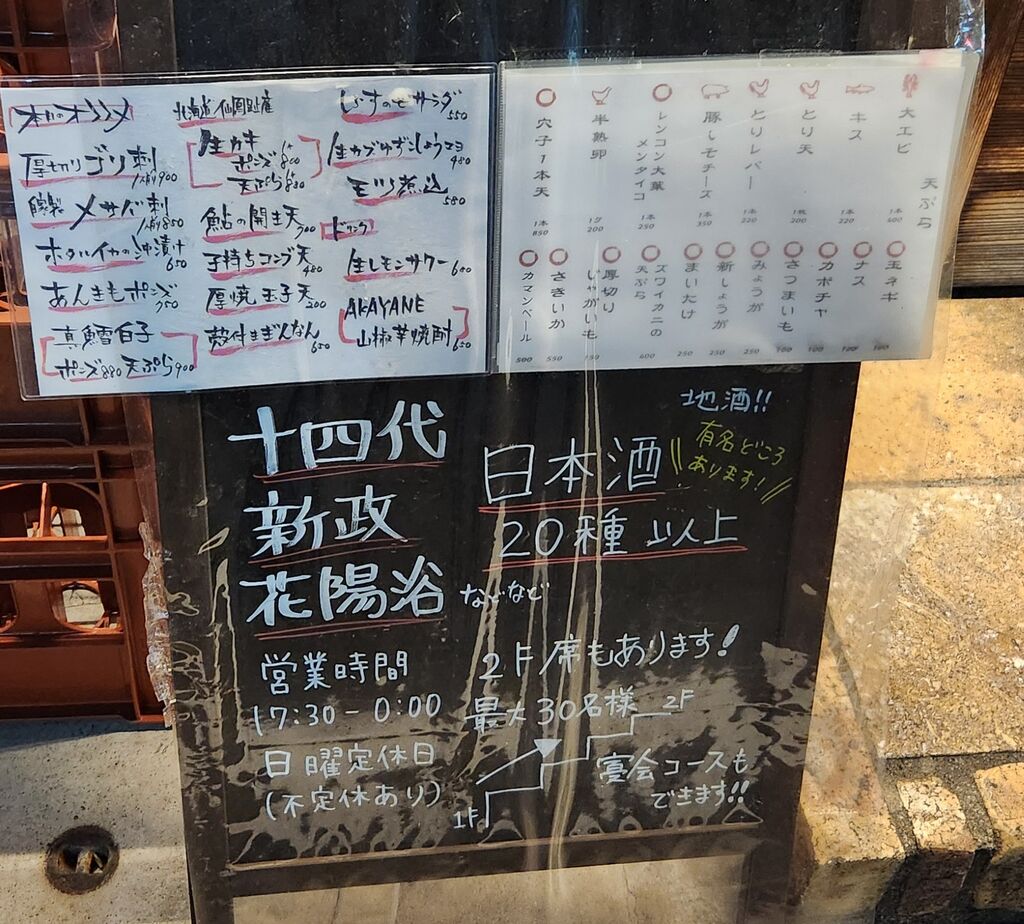 本日のオススメ
厚切りゴリ刺
1人前900
自製 〆サバ刺
1人前850
ホタルイカの沖漬け
650
あんきもポンズ
750
真鱈白子
ポンズ880 天ぷら900
北海道仙鳳趾産
生カキ
ポンズ 1ヶ800
天ぷら 1ヶ830
鮎の開き天
700
子持ちコンブ天
480
厚焼玉子天
200
殻付きぎんなん
650
しらすのせサラダ
550
生カブゆずこしょうマヨ
480
モツ煮込
580
ドリンク
生レモンサワー 600
AKAYANE
山椒芋焼酎
650
天ぷら
大エビ 1本 600
キス 1本 220
とり天 1枚 200
とりレバー 1本 220
豚しそチーズ 1本 350
レンコン大葉メンタイコ 1本 250
半熟卵 1ケ 200
穴子1本天 1本 850
玉ネギ 100
ナス 100
カボチャ 100
さつまいも 100
みょうが 250
新しょうが 250
まいたけ 250
ズワイガニの天ぷら 600
厚切りじゃがいも 150
さきいか 550
カマンベール 500
十四代
新政
花陽浴 などなど
地酒!!
有名どころ
あります!
日本酒
20種以上
営業時間
17:30-0:00
日曜定休日
(不定休あり)
2F席もあります!
最大30名様
2F
1F
宴会コースも
できます!!